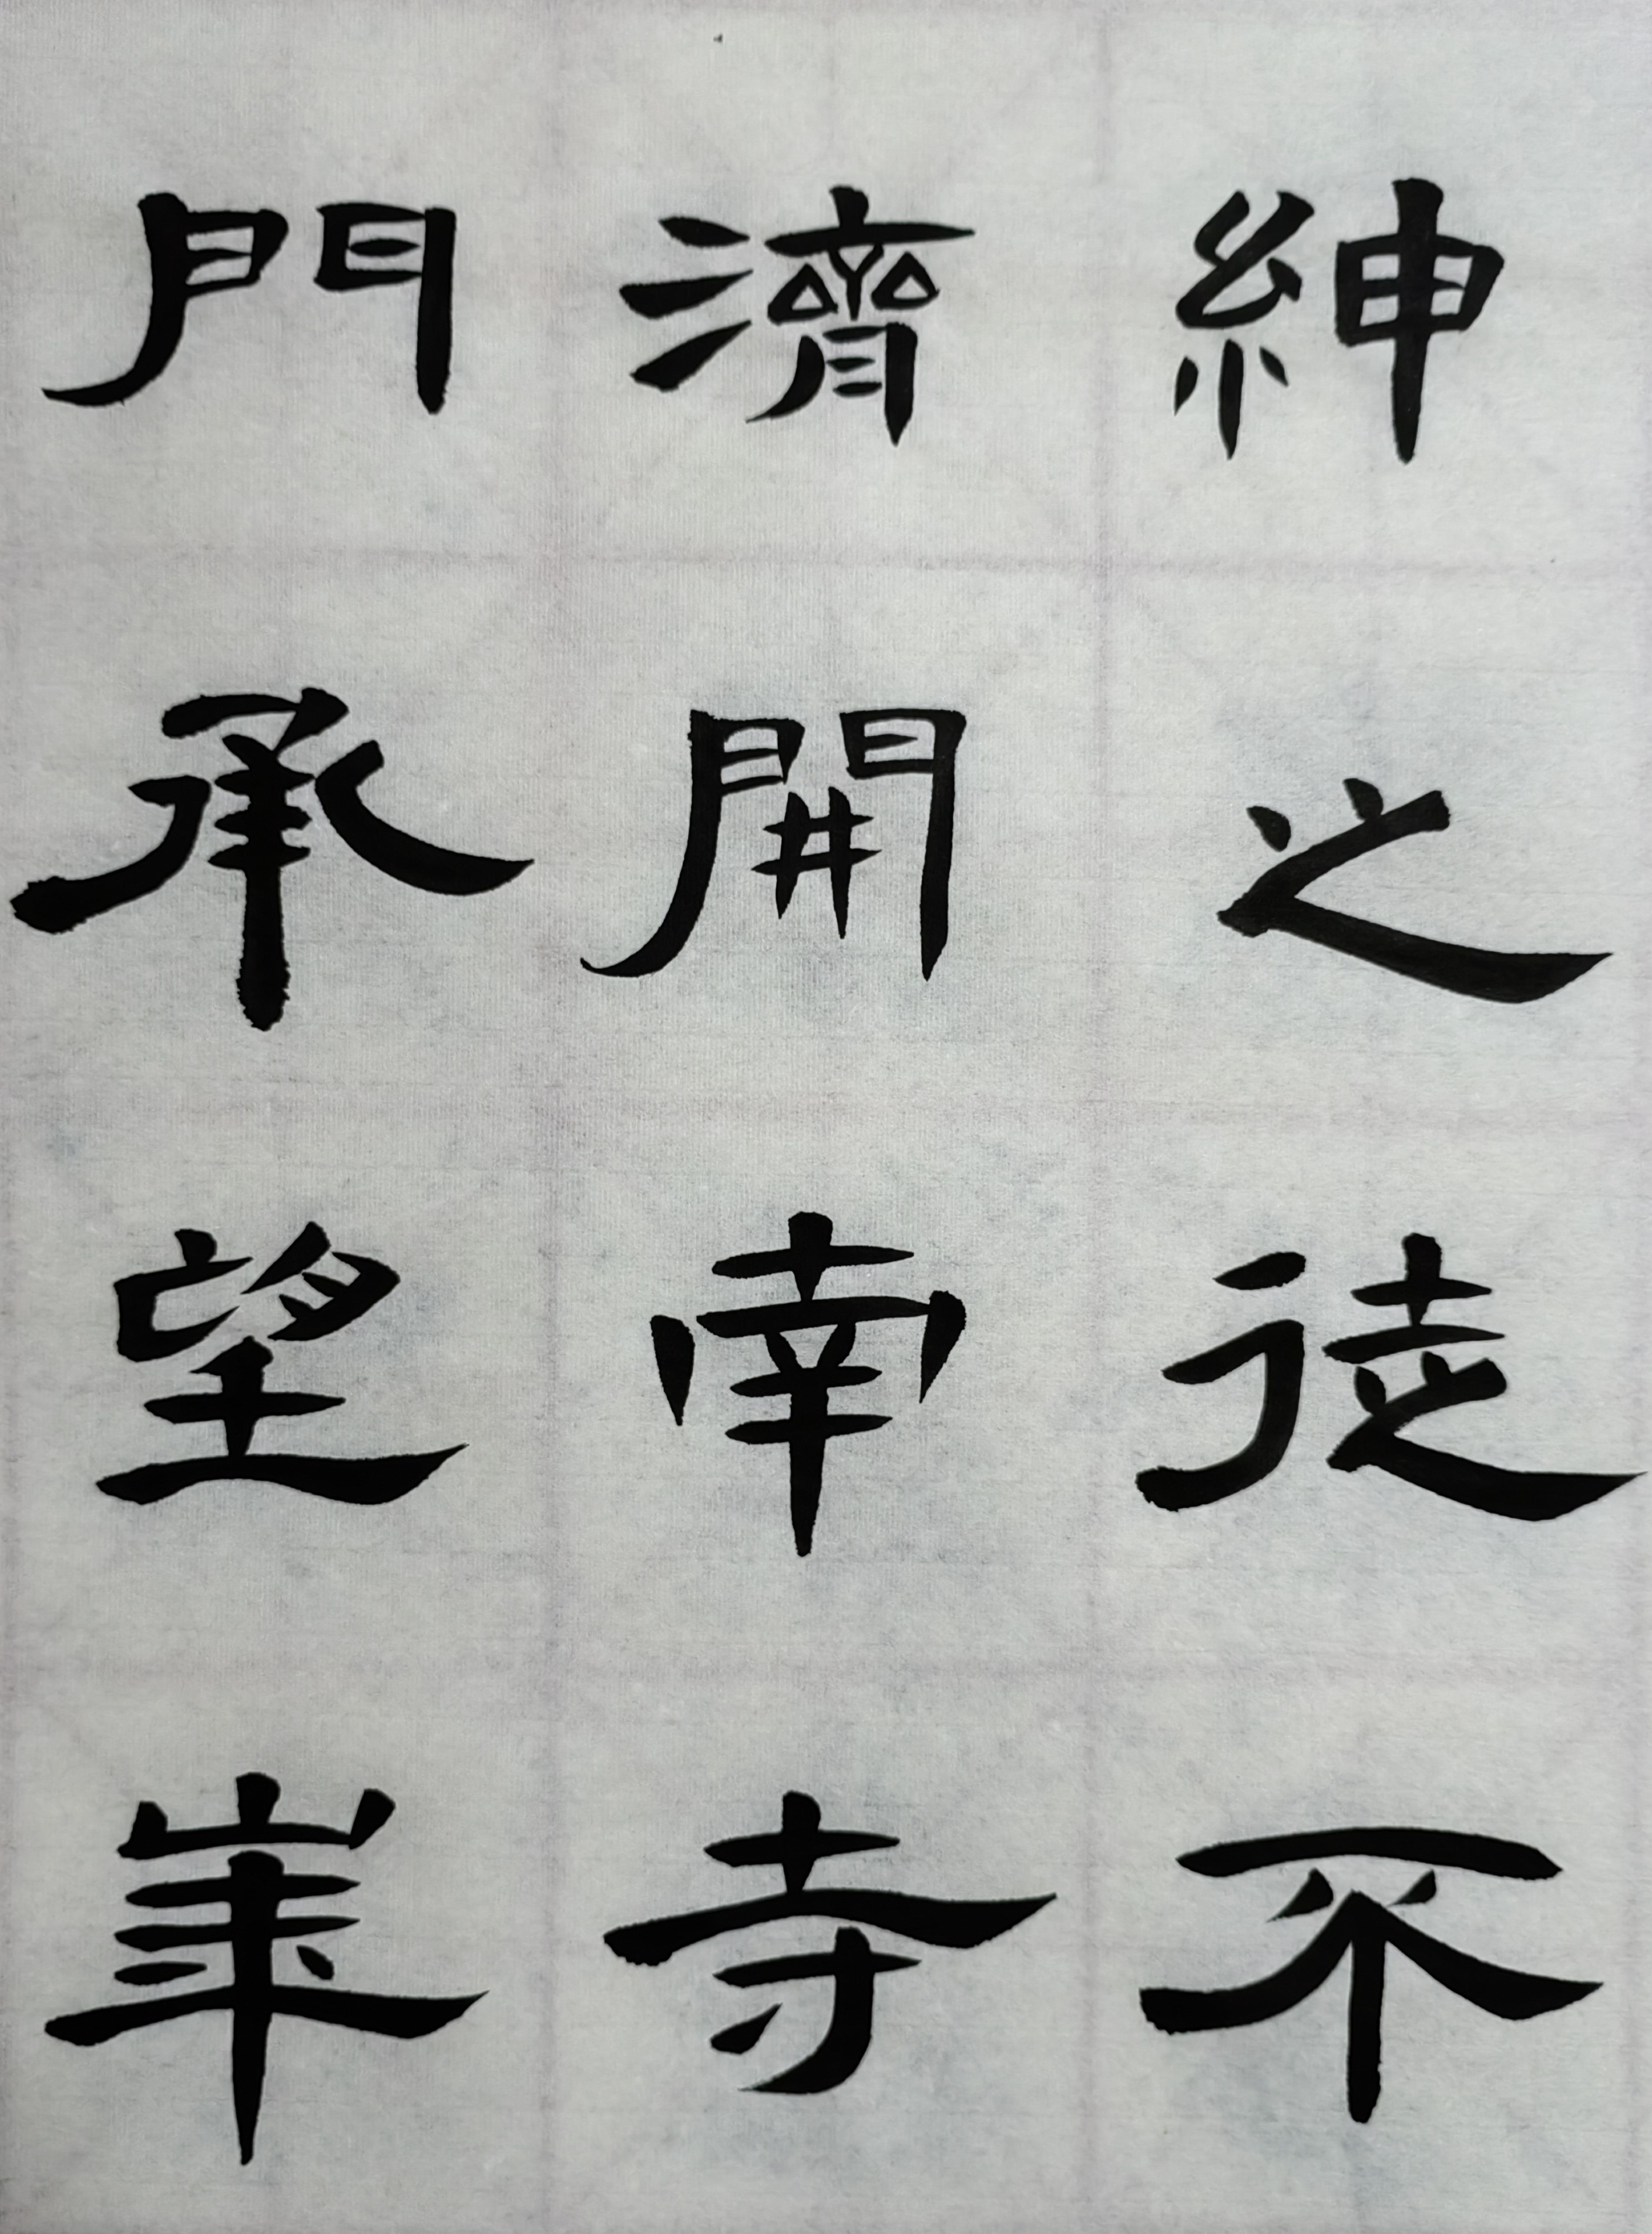 紳之徒不
濟開南寺
門承望崋